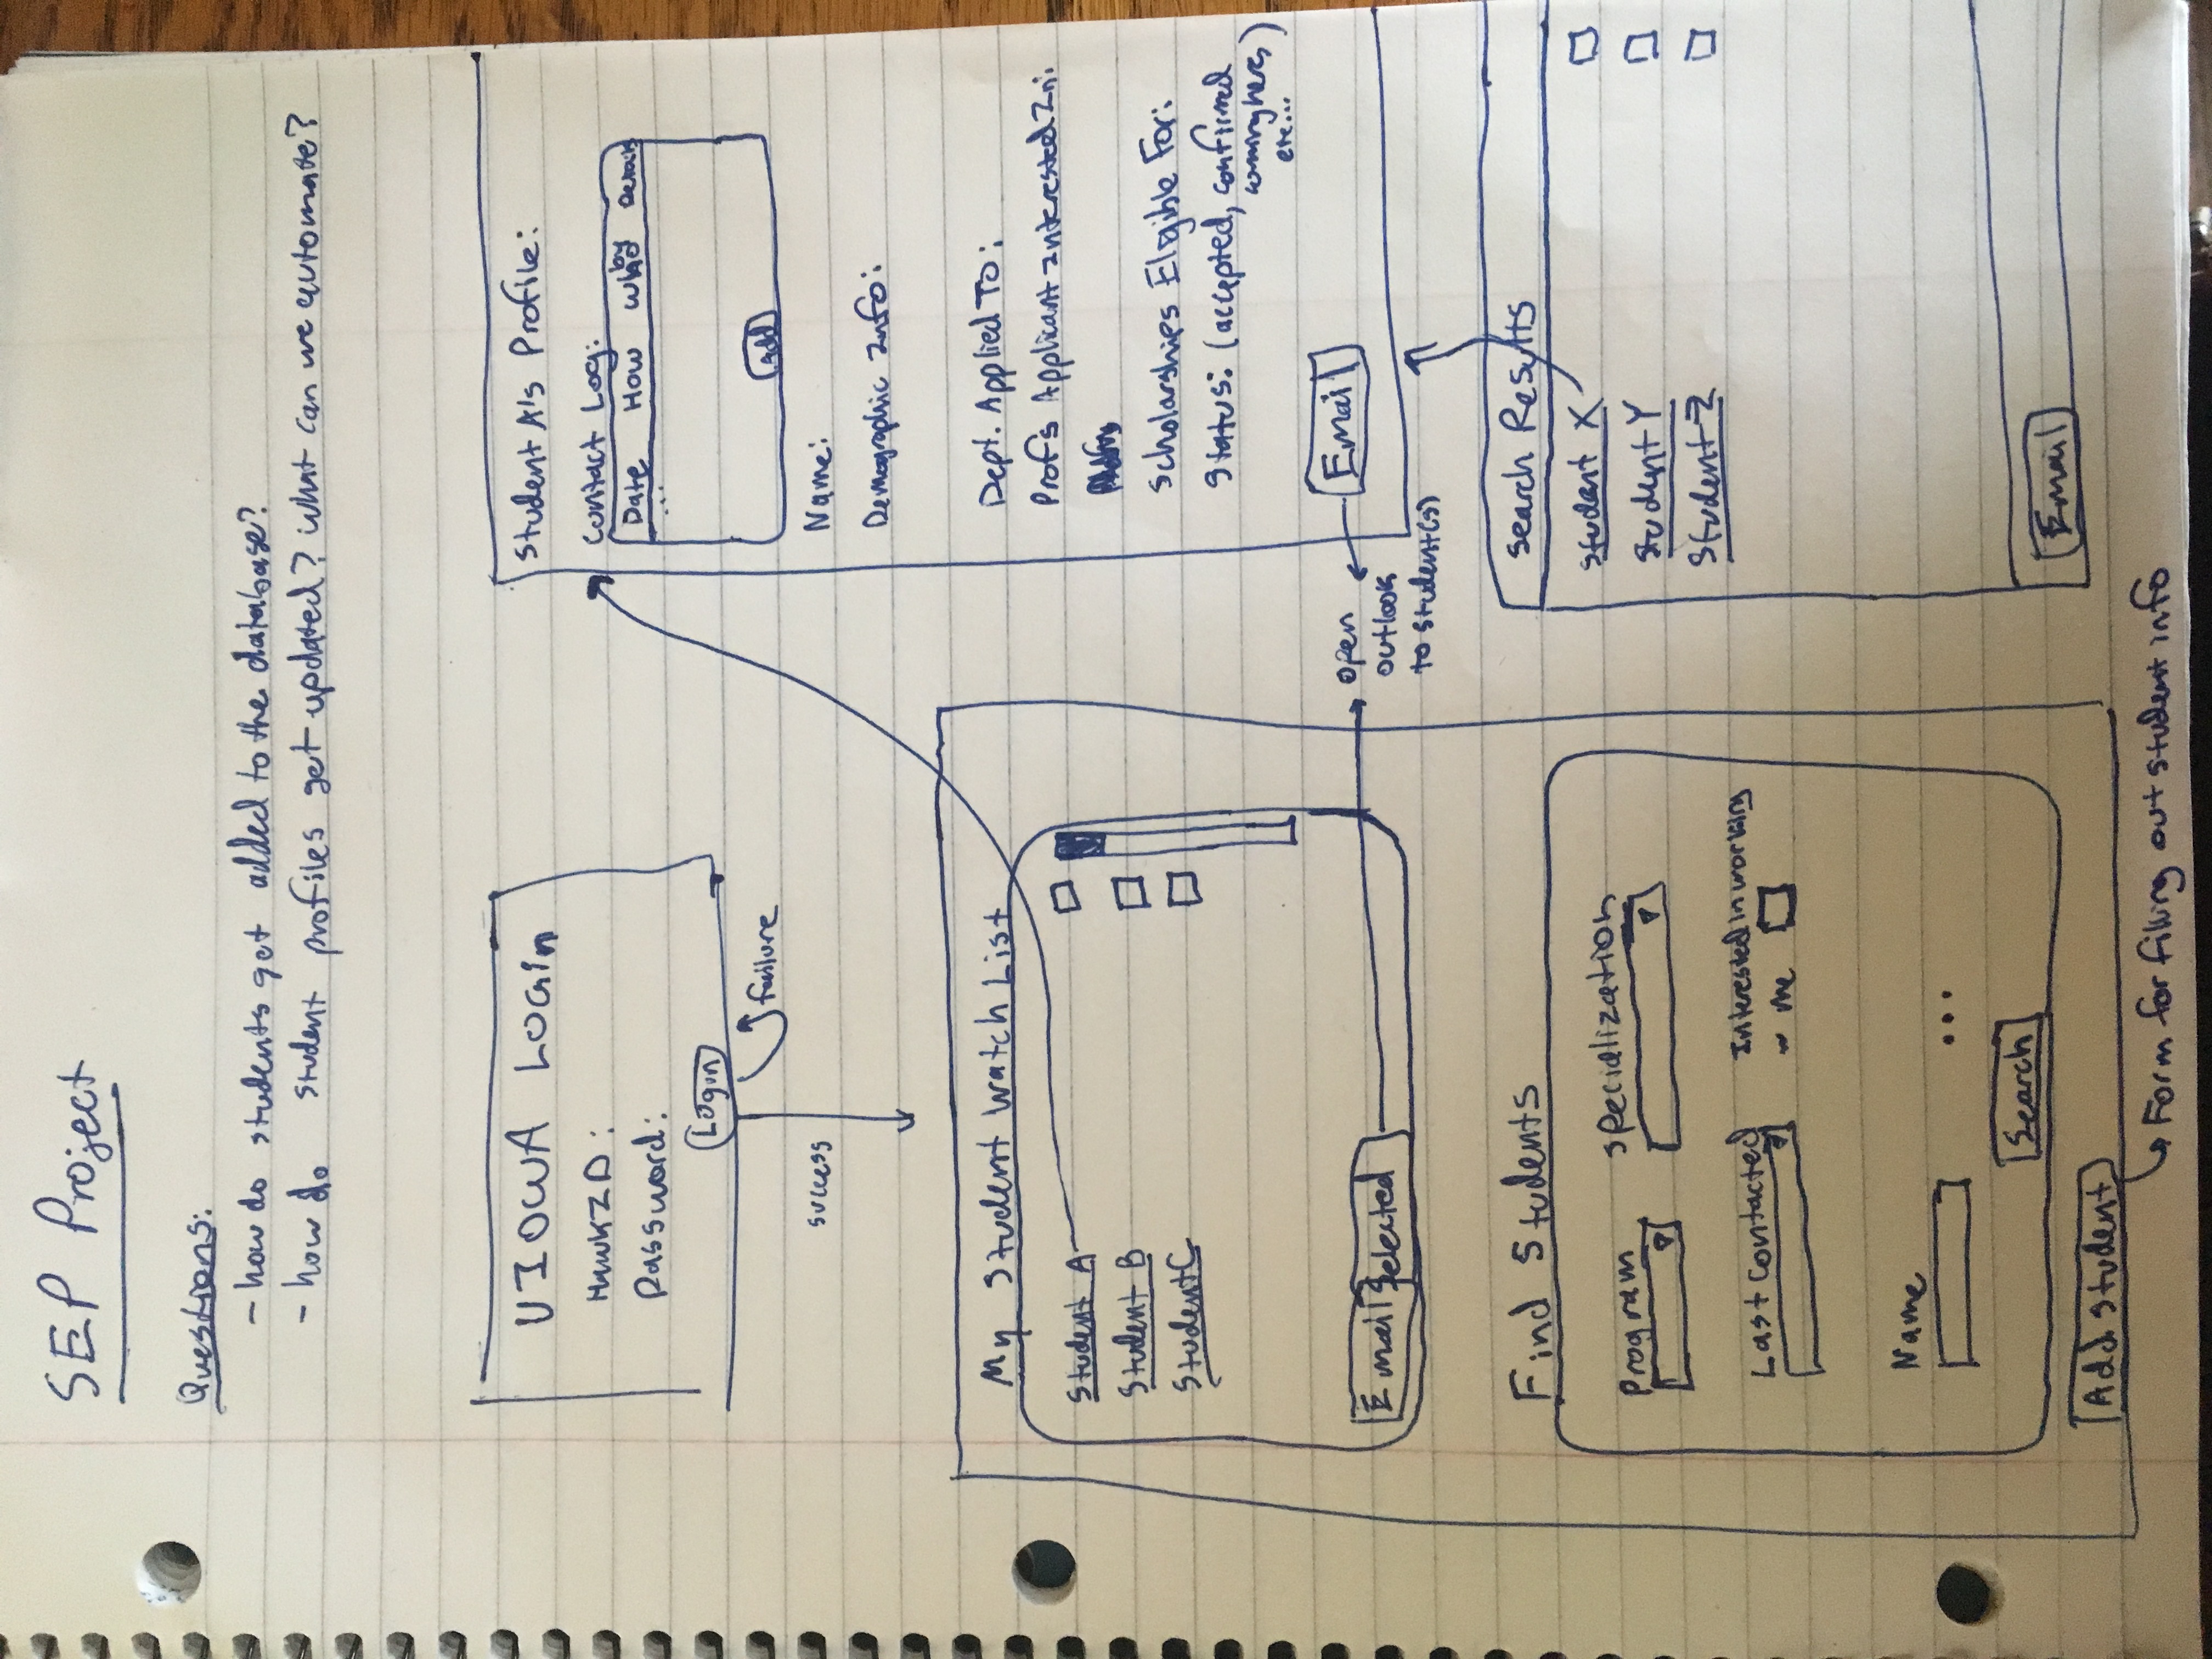 SEP Project
Questions:
- how do students get added to the database?
- how do student profiles get updated? what can we automate?
UIOWA Login
HawkID:
Password:
Login
failure
success
My Student Watch List
Student A
Student B
Student C
Email Selected
open
outlook
to student(s)
Find Students
Program
Specialization
Last contacted
Interested in working
w me
Name
...
Search
Add Student
Form for filling out student info
Student A's Profile:
Contact Log:
Date How by who Details
...
Add
Name:
Demographic Info:
Dept. Applied To:
Profs Applicant Interested In:
Scholarships Eligible For:
Status: (accepted, confirmed
coming here,)
etc...
Email
Search Results
Student X
Student Y
Student Z
Email